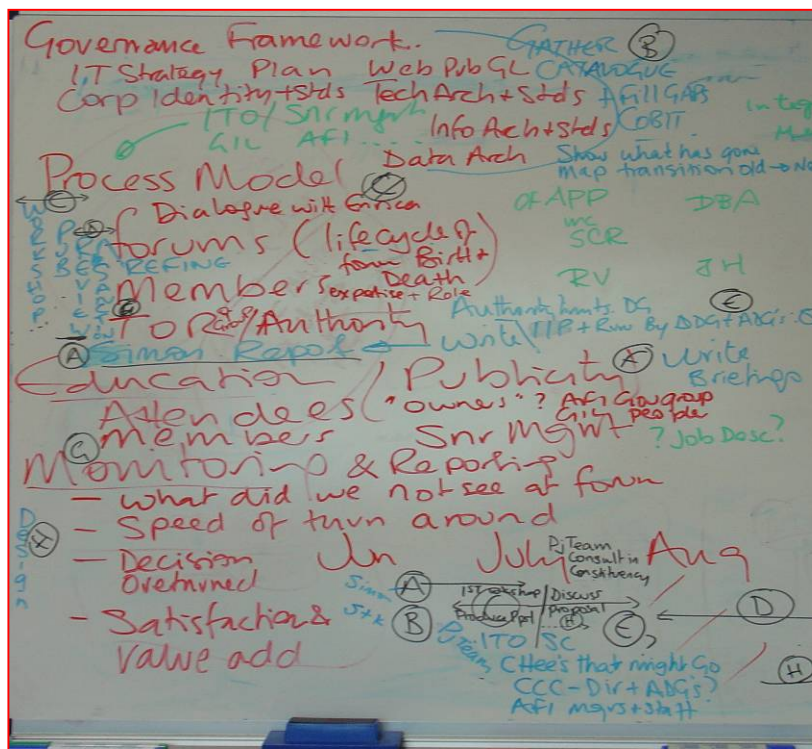 Governance Framework.
GATHER B
I.T Strategy Plan Web Pub GL CATALOGUE
Corp Identity + Stds Tech Arch + Stds + Fill GAPS
ITO/ Snr mgmt Info Arch + Stds COBIT
GIL AFI ....
Data Arch Show what has gone
Map transition old → N
Process Model
OF APP DBA
inc
SCR
RV JH
C
WORKSHOP
Dialogue with Enrica
forums (lifecycle of
forum Birth +
Death)
REFINE
Members expertise + Role
ToR /Authority
Authority limits DG E
Write TIP + Run By DDG + ADG's
A Simon Report
Education / Publicity A Write
Briefings
Attendees ("owners"? AFI Gov group
GIG people
G Members Snr Mgmt ? Job Desc?
Monitoring & Reporting
– What did we not see at forum
– Speed of turn around
Design
– Decision
Overturned
– Satisfaction &
Value add
Jun July Aug
Pj Team
Consult in
Constituency
Simon A 1st workshop Discuss
Stk B Produce Ppsl Proposal
C H E D
Pj Team ITO / SC
H
CHee's that might Go
CCC - Dir + ADG's?
AFI mgrs + staff